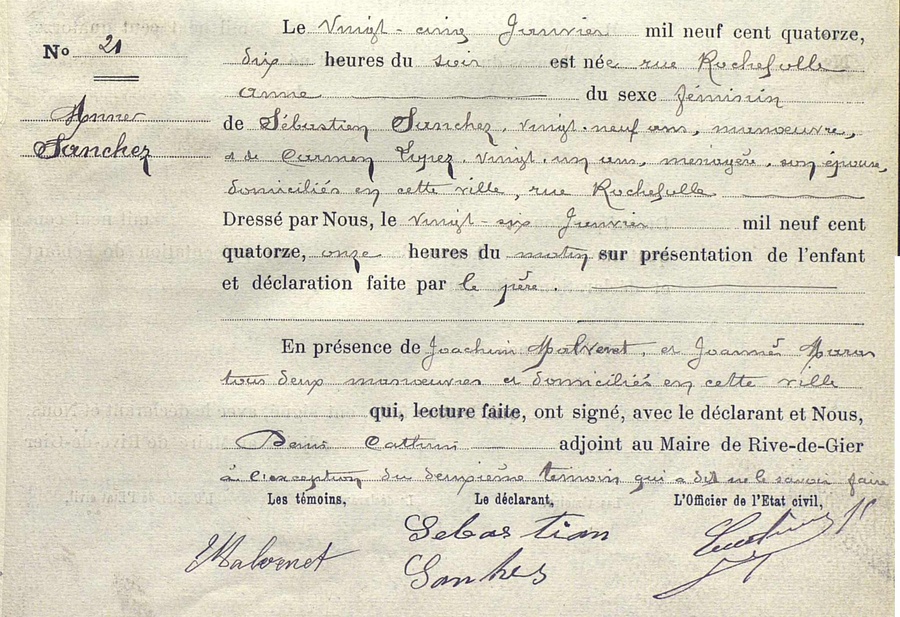 No 21
Anne
Sanchez
Le Vingt-cinq Janvier mil neuf cent quatorze,
dix heures du soir est née rue Rochefolle
Anne du sexe féminin
de Sébastien Sanchez, vingt-neuf ans, manœuvre,
et de Carmen Lopez, vingt-un ans, ménagère, son épouse,
domiciliés en cette ville, rue Rochefolle
Dressé par Nous, le vingt-six Janvier mil neuf cent
quatorze, onze heures du matin sur présentation de l'enfant
et déclaration faite par le père.
En présence de Joachim Malvenet, et Joannès
tous deux manœuvres et domiciliés en cette ville
qui, lecture faite, ont signé, avec le déclarant et Nous,
Denis adjoint au Maire de Rive-de-Gier
à l'exception du deuxième témoin qui a dit ne le savoir faire
Les témoins, Le déclarant, L'Officier de l'Etat civil,
Malvenet
Sebastian
Sanhes